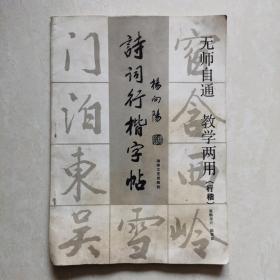 无师自通 教学两用(行楷)
詩词行楷字帖
杨向阳
窗含西岭雪
门泊東吴